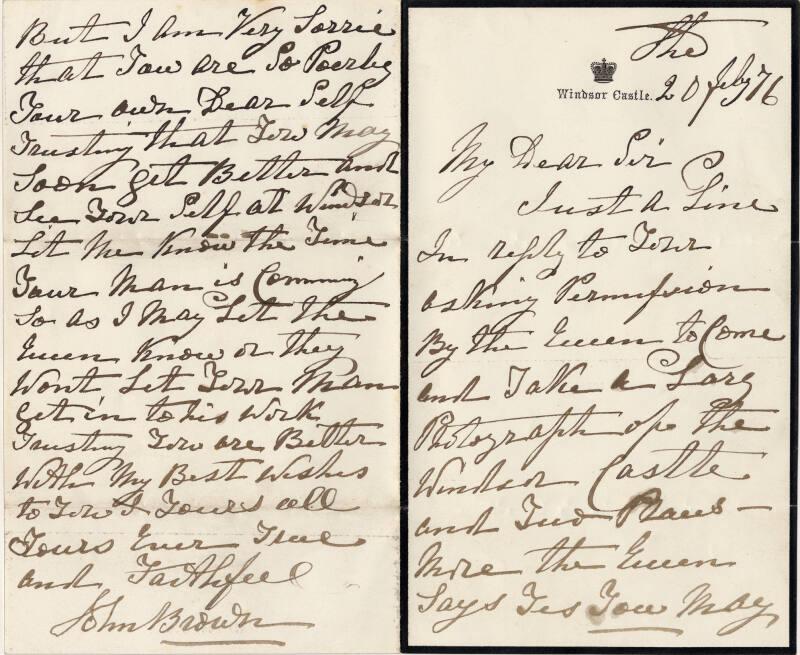 The
Windsor Castle. 20 feby 76
My Dear Sir
Just a Line
In reply to Your
asking Permission
By the Queen to Come
and Take a Larg
Photograph of the
Windsor Castle
and Two
More the Queen
Says Yes You May
But I am Very Sorrie
that You are So Poerly
Your own Dear Self
Trusting that You May
Soon get Better and
See Your Self at Windsor
Let Me Know the Time
Your Man is Comming
So as I May Let the
Queen Know or they
Wont Let Your Man
get in to his Work
Trusting You are Better
With My Best Wishes
to You & Yours all
Yours Ever True
and Faithfeel
John Brown